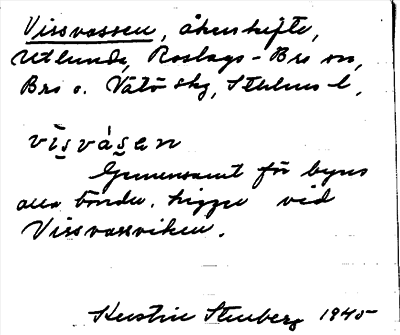 Vissvassen, åkerskifte,
Utlunda, Roslags-Bro sn,
Bro o. Vätö skg, Sthlms l,
visvásen
Gemensamt för byns
alla bönder. Ligger vid
Vissvassviken.
Kerstin Stenberg 1945